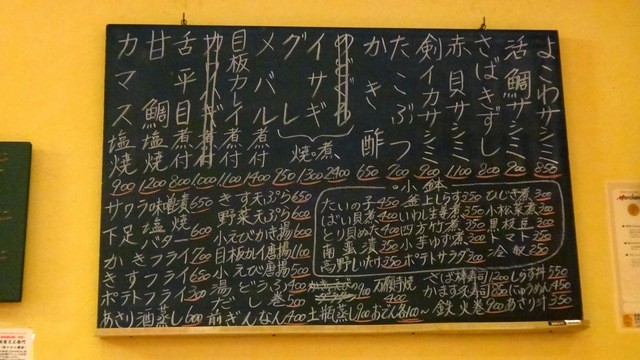 よこわサシミ 850
活鯛サシミ 900
さばきずし 800
赤貝サシミ 1100
剣イカサシミ 900
たこぶつ
かき酢 650
イサギ
グレ 950
焼。煮
メバル煮付 1400
目板カレイ煮付 1100
舌平目煮付 800
甘鯛塩焼 1200
カマス塩焼 900
サワラ味噌漬 650
下足塩焼
バター 600
かきフライ 700
きすフライ 650
ポテトフライ 300
あさり酒蒸し 600
きす天ぷら 650
野菜天ぷら 600
小えびかき揚 600
目板カレイ唐揚 1100
小えび唐揚 500
湯どうふ 400
だし巻 500
煎ぎんなん 400
土瓶蒸し 900
おでん各100〜
小鉢
たいの子 450
ばい貝煮 400
とり貝ぬた 400
南蛮漬 350
高野しいたけ 350
釜上しらす 350
いわし生姜煮 350
四方竹煮 350
小芋ゆず煮 300
ポテトサラダ 300
ひじき煮 300
小松菜煮 300
黒枝豆 300
トマト 350
冷奴 350
さば棒寿司 1200
かます天寿司 850
鉄火巻 900
しらす丼 550
にゅうめん 450
あさり汁 350